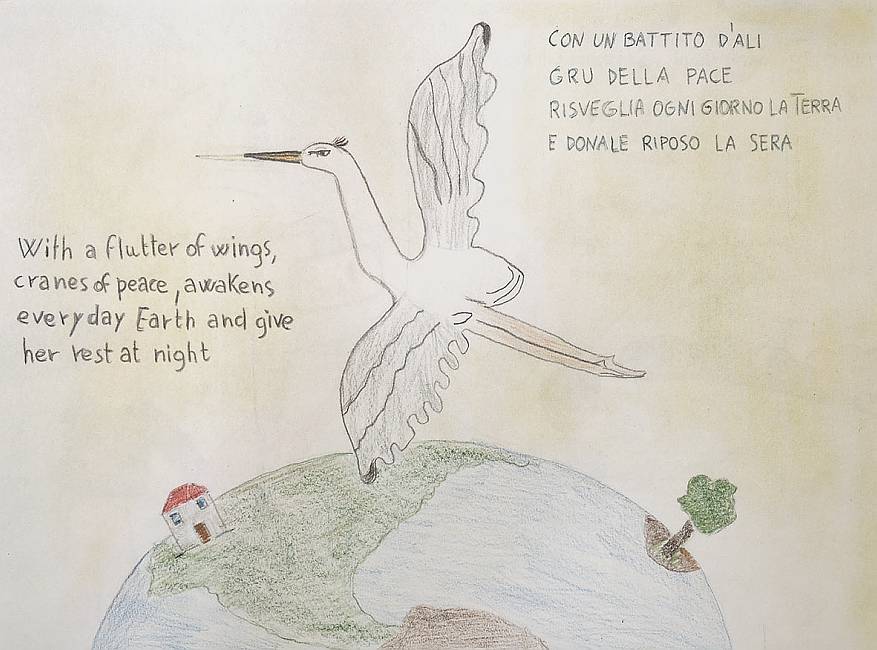 CON UN BATTITO D'ALI
GRU DELLA PACE
RISVEGLIA OGNI GIORNO LA TERRA
E DONALE RIPOSO LA SERA
With a flutter of wings,
cranes of peace, awakens
everyday Earth and give
her rest at night